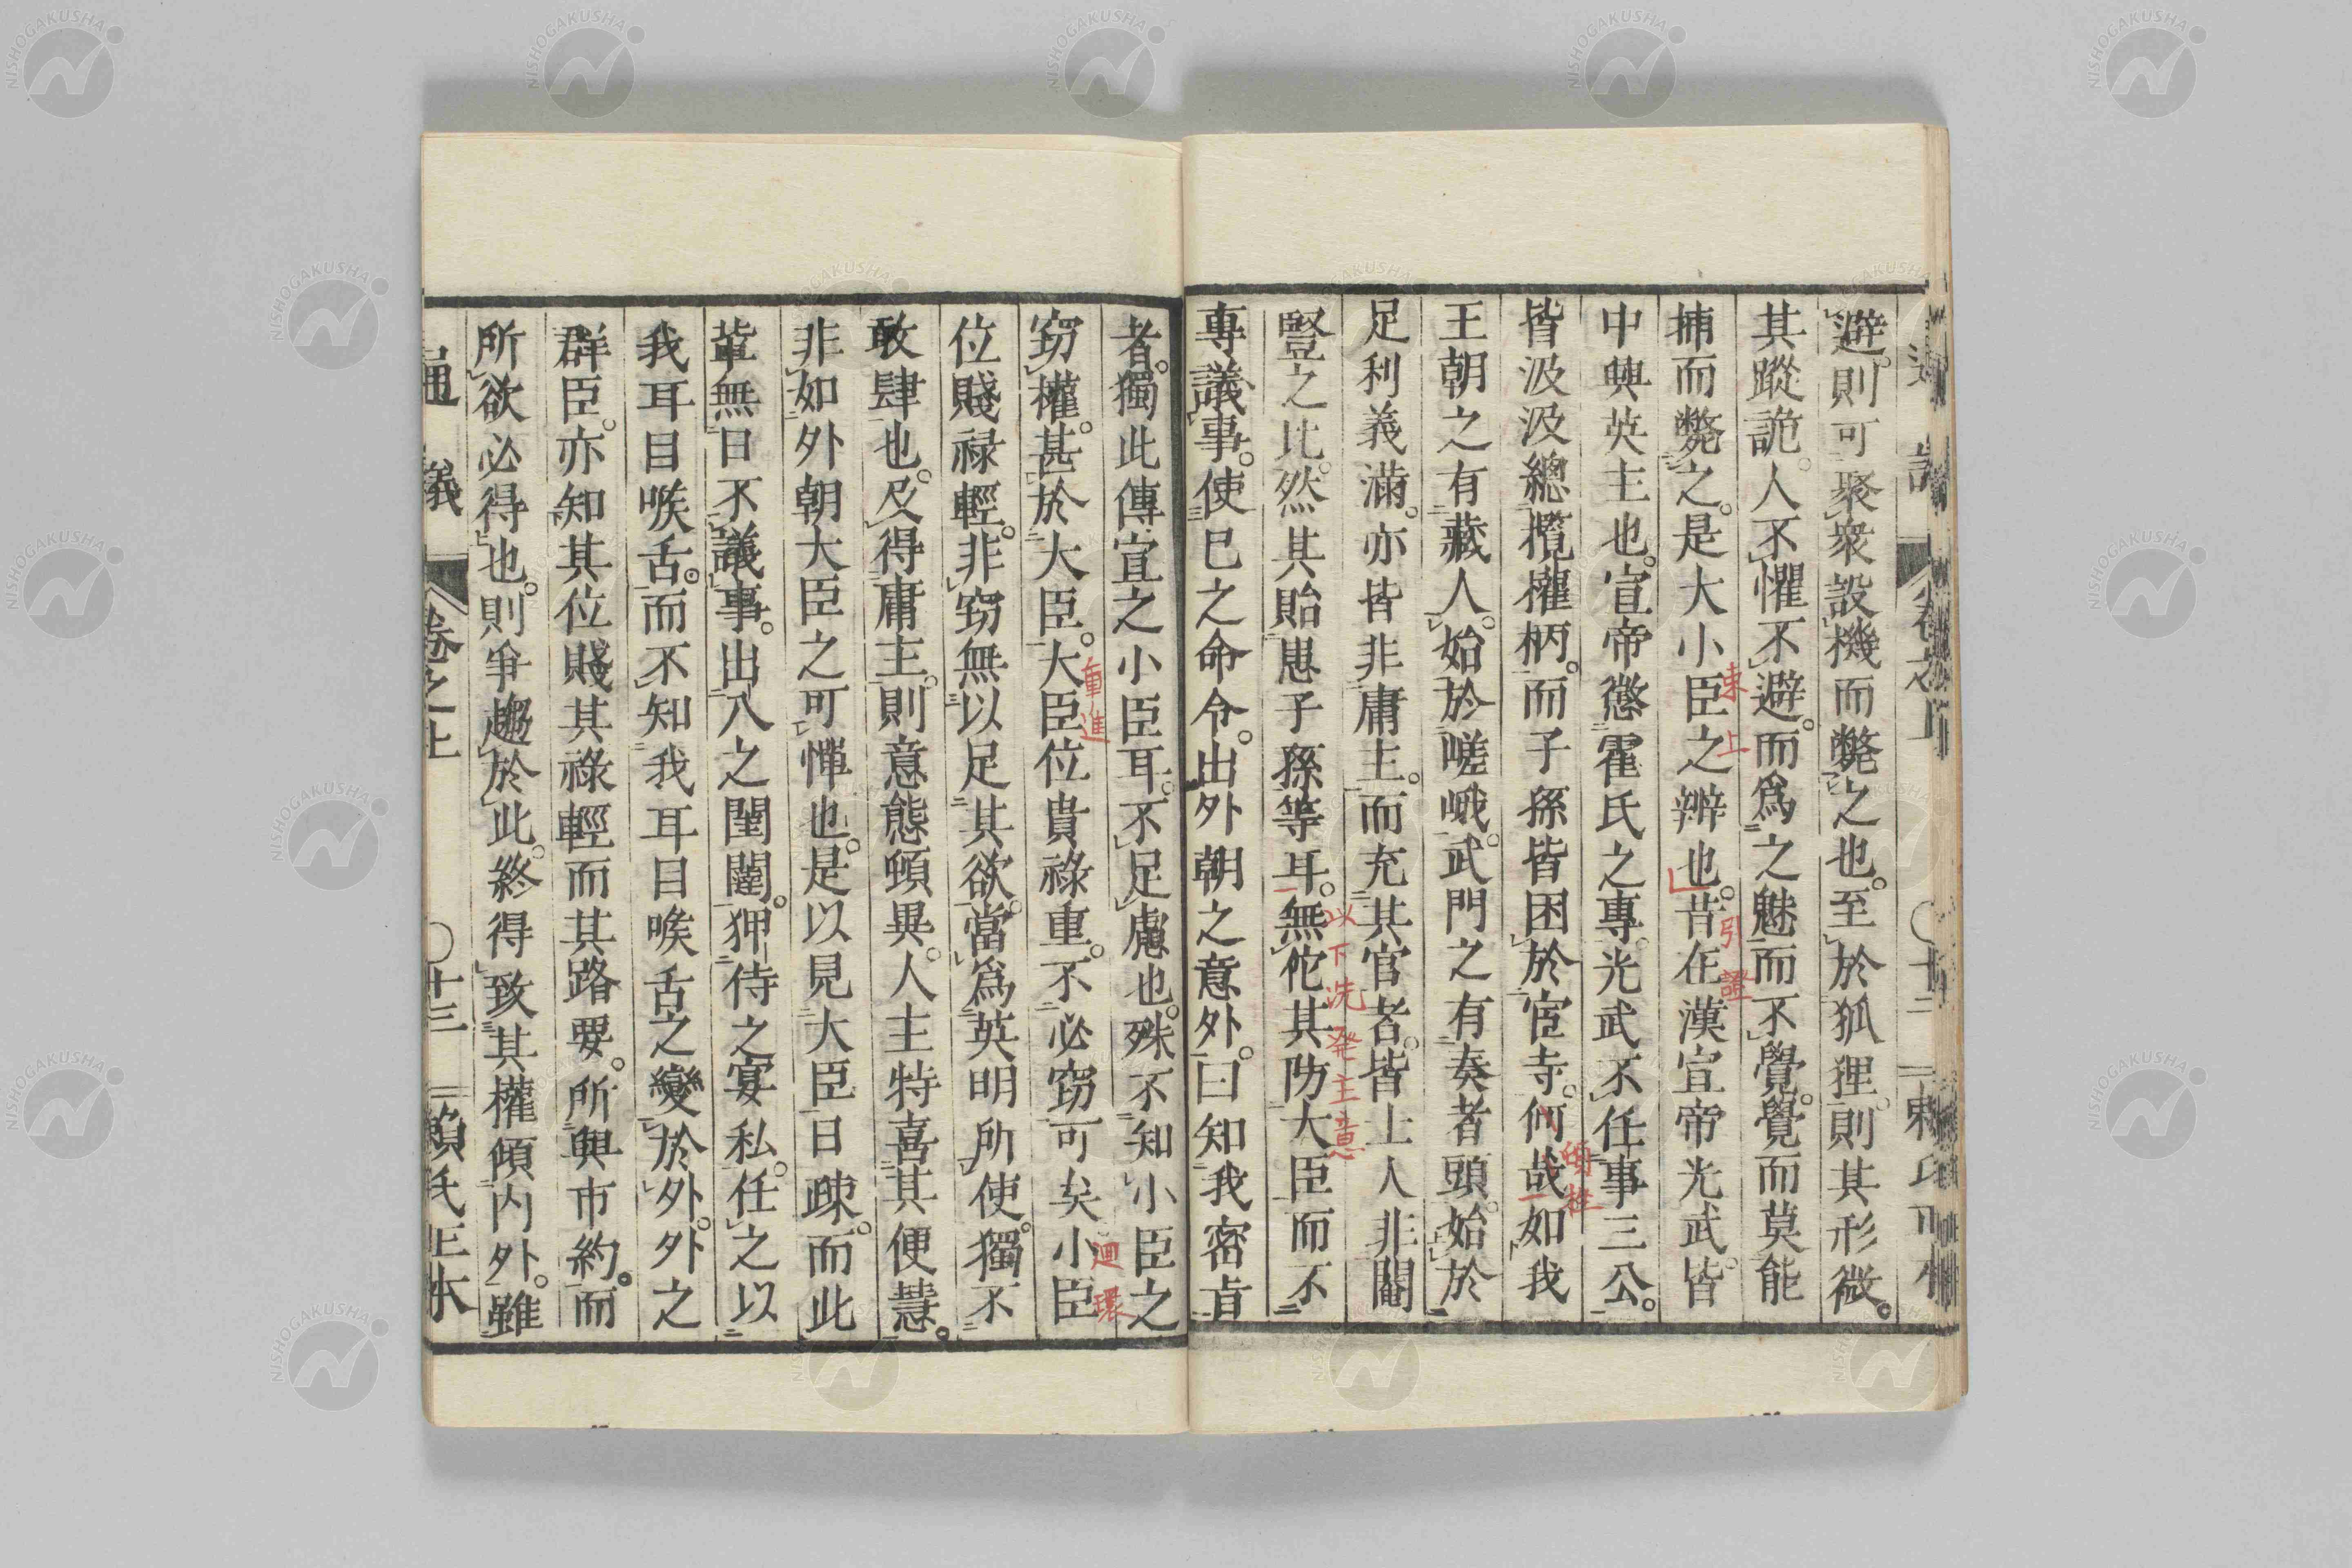 避。則可聚衆設機而斃之也。至於狐狸。則其形微。
其蹤詭。人不懼不避。而爲之魅而不覺。覺而莫能
捕而斃之。是大小臣之辨也。昔在漢宣帝光武。皆
束上
引證
中興英主也。宣帝懲霍氏之專。光武不任事三公。
皆汲汲總攬權柄。而子孫皆困於宦寺。何哉如我
倒柱
王朝之有藏人。始於嵯峨。武門之有奏者頭。始於
足利義滿。亦皆非庸主。而充其官者。皆士人非閹
豎之比。然其貽患子孫等耳。無佗其防大臣而不
以下洗発主意
專議事。使已之命令。出外朝之意外。曰知我密旨
者。獨此傳宣之小臣耳。不足慮也。殊不知小臣之
竊權。甚於大臣。大臣位貴祿重。不必竊可矣小臣
重進
廻環
位賤祿輕。非竊無以足其欲。當爲英明所使。獨不
敢肆也。及得庸主。則意態頓異。人主特喜其便慧。
非如外朝大臣之可憚也。是以見大臣日疎。而此
輩無日不議事。出入之闈闥。狎侍之宴私。任之以
我耳目喉舌。而不知我耳目喉舌之變於外。外之
群臣。亦知其位賤其祿輕而其路要。所興市約。而
所欲必得也。則爭趨於此。終得致其權傾内外。雖
通議 卷之上 〇十三 賴氏正本